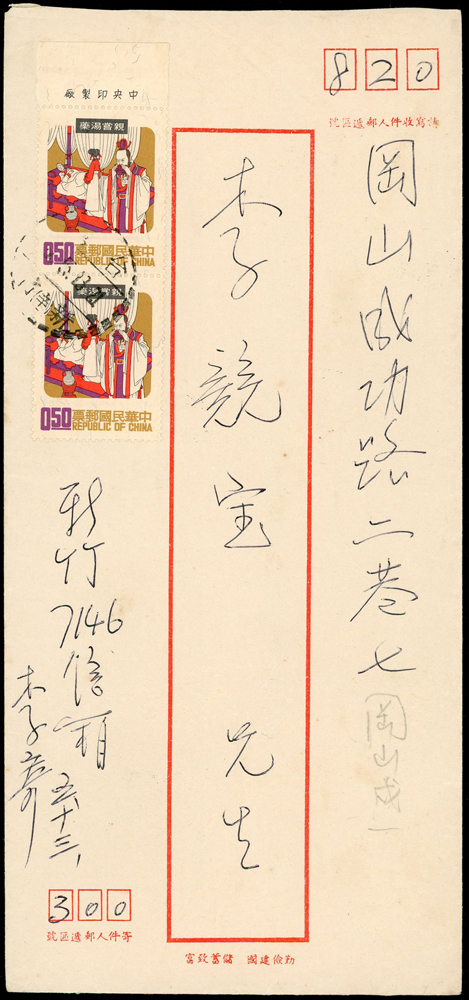 820
請寫收件人郵遞區號
岡山成功路二巷七
岡山成一
李競宝 先生
中央印製廠
親嘗湯藥
0.50 中華民國郵票
REPUBLIC OF CHINA
親嘗湯藥
0.50 中華民國郵票
REPUBLIC OF CHINA
新竹7146信箱
五十三
李
300
寄件人郵遞區號
勤儉建國 儲蓄致富